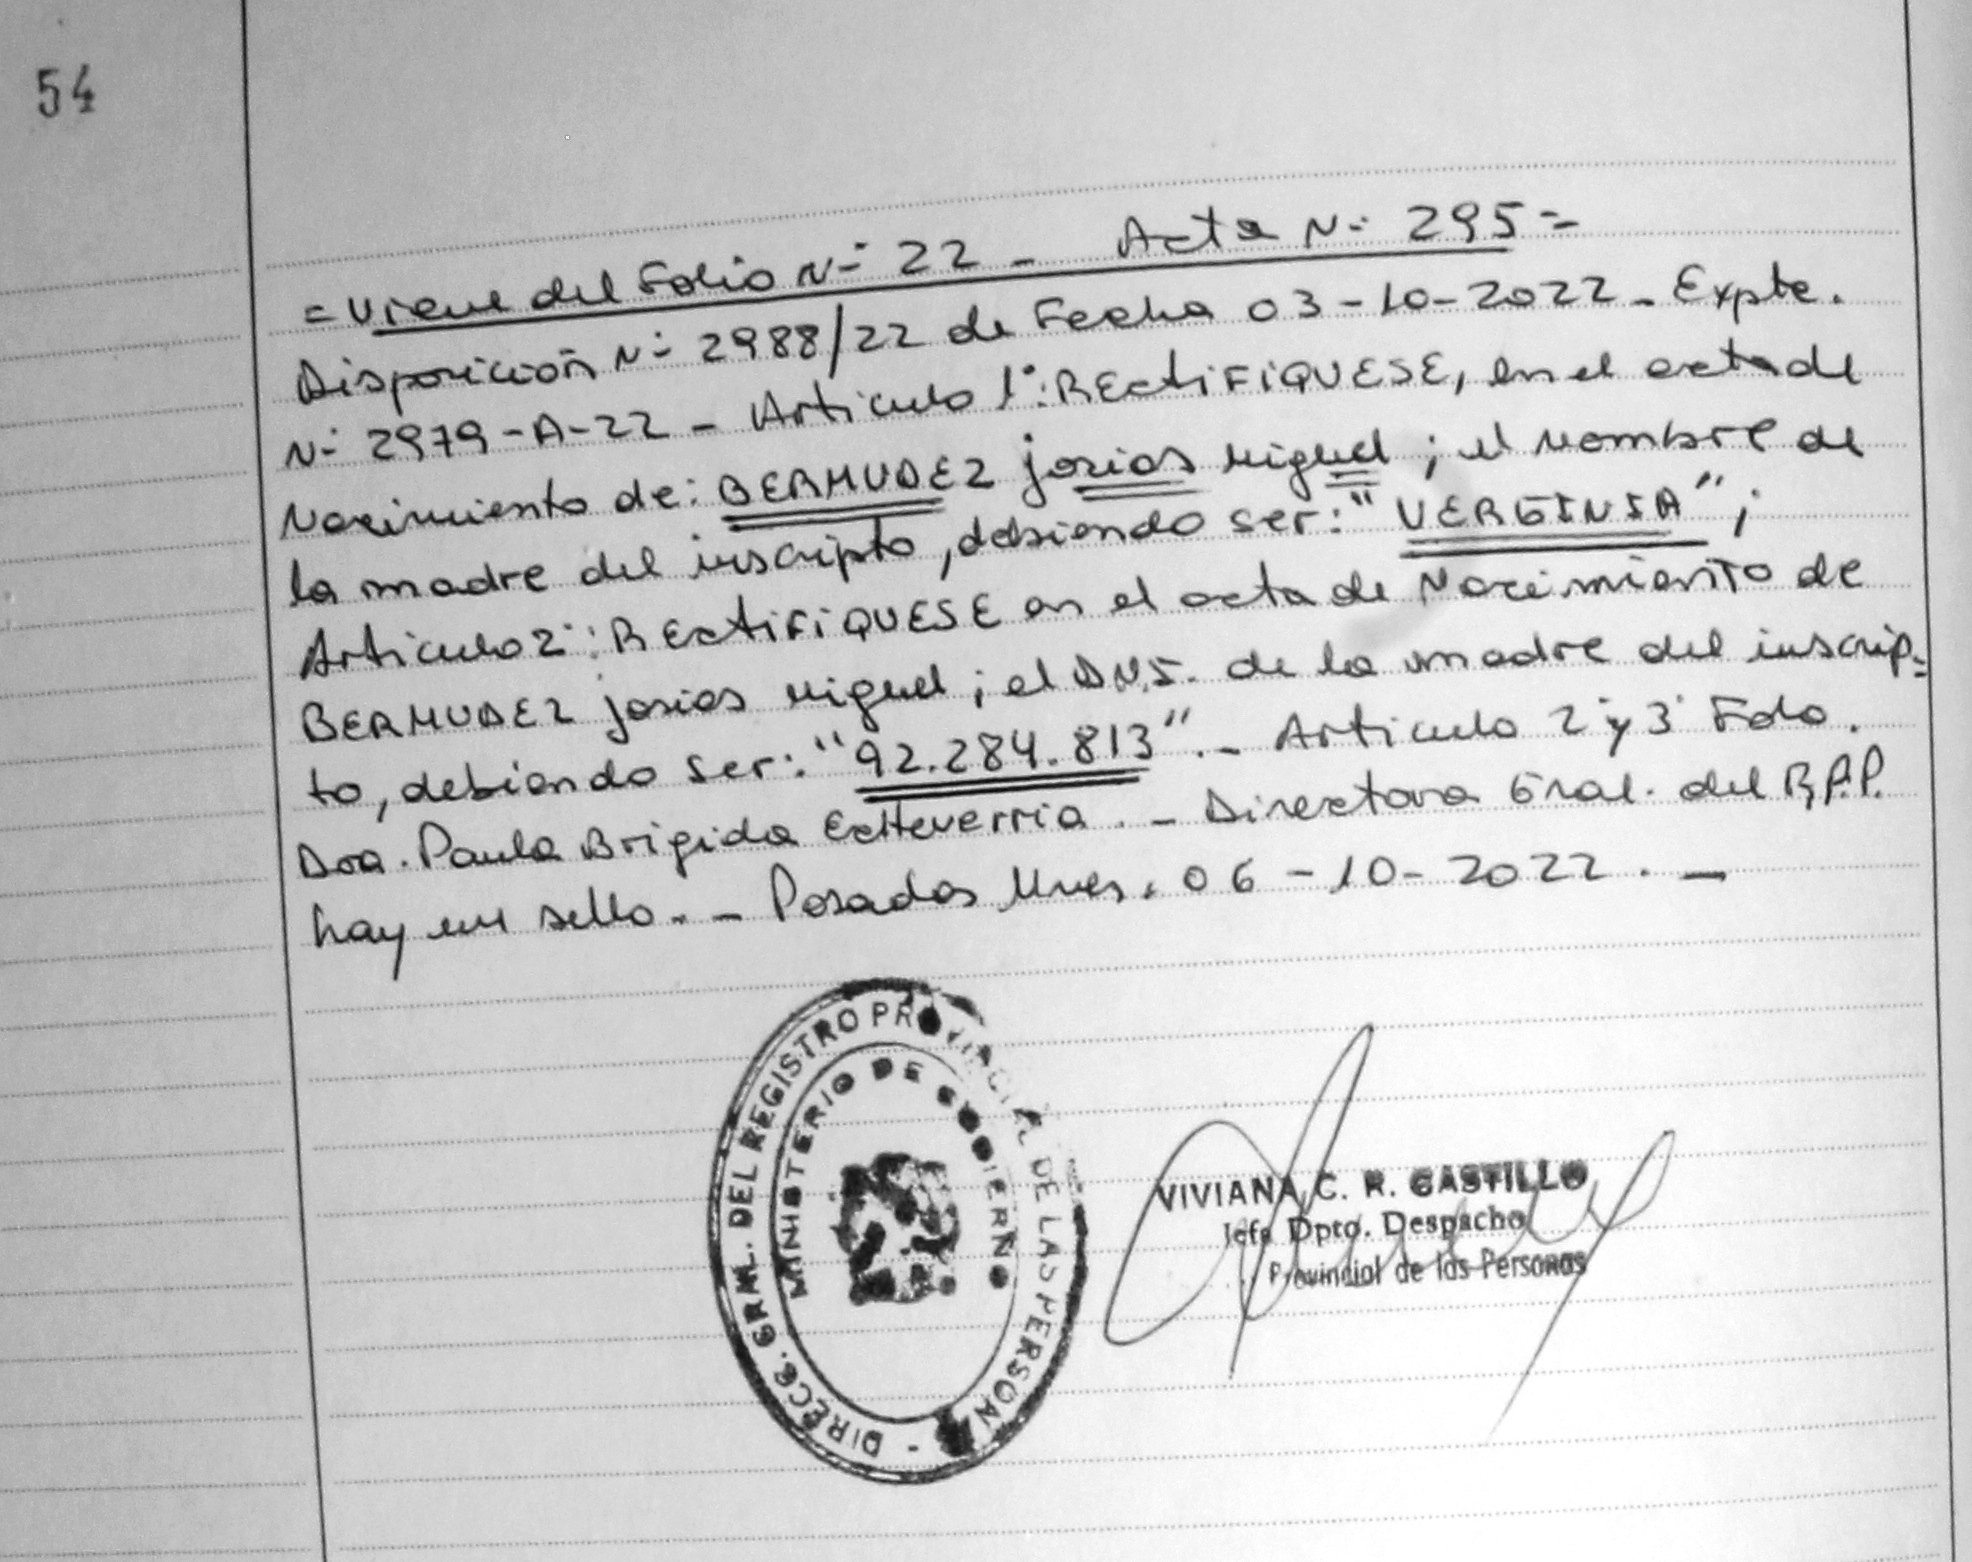 54
= Viene del Folio N- 22 - Acta N- 295 =
Disposición N- 2988/22 de Fecha 03-10-2022 - Expte.
N- 2979-A-22 - Articulo 1°: RECTIFIQUESE, en el acta de
Nacimiento de: BERMUDEZ josias Miguel ; el Nombre de
la madre del inscripto, debiendo ser: "VERGINIA" ;
Articulo 2°: RECTIFIQUESE en el acta de Nacimiento de
BERMUDEZ josias Miguel ; el D.N.I. de la madre del inscrip=
to, debiendo ser: "92.284.813". - Articulo 2° y 3° Fdo.
Dra. Paula Brigida Echeverria . - Directora Gral. del R.P.P.
hay un sello. - Posadas Mnes. 06-10-2022. -
DIRECC. GRAL. DEL REGISTRO PROVINCIAL DE LAS PERSONAS -
MINISTERIO DE GOBIERNO
VIVIANA C. R. CASTILLO
Jefe Dpto. Despacho
Provincial de las Personas